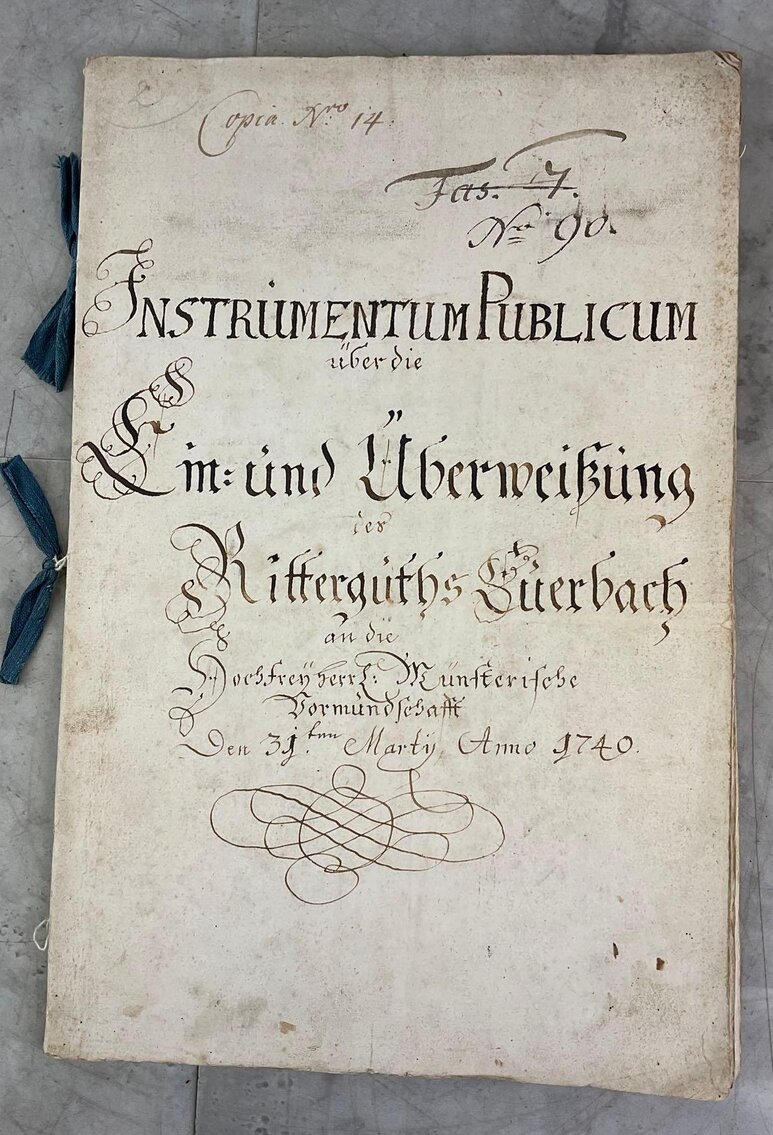 Copia Nro 14.
Fas. 17.
No 90.
INSTRUMENTUM PUBLICUM
über die
Ein= und Überweißung
des
Ritterguths Euerbach
an die
Hochfreyherrl: Münsterische
Vormundschafft
Den 31ten Martij Anno 1740.